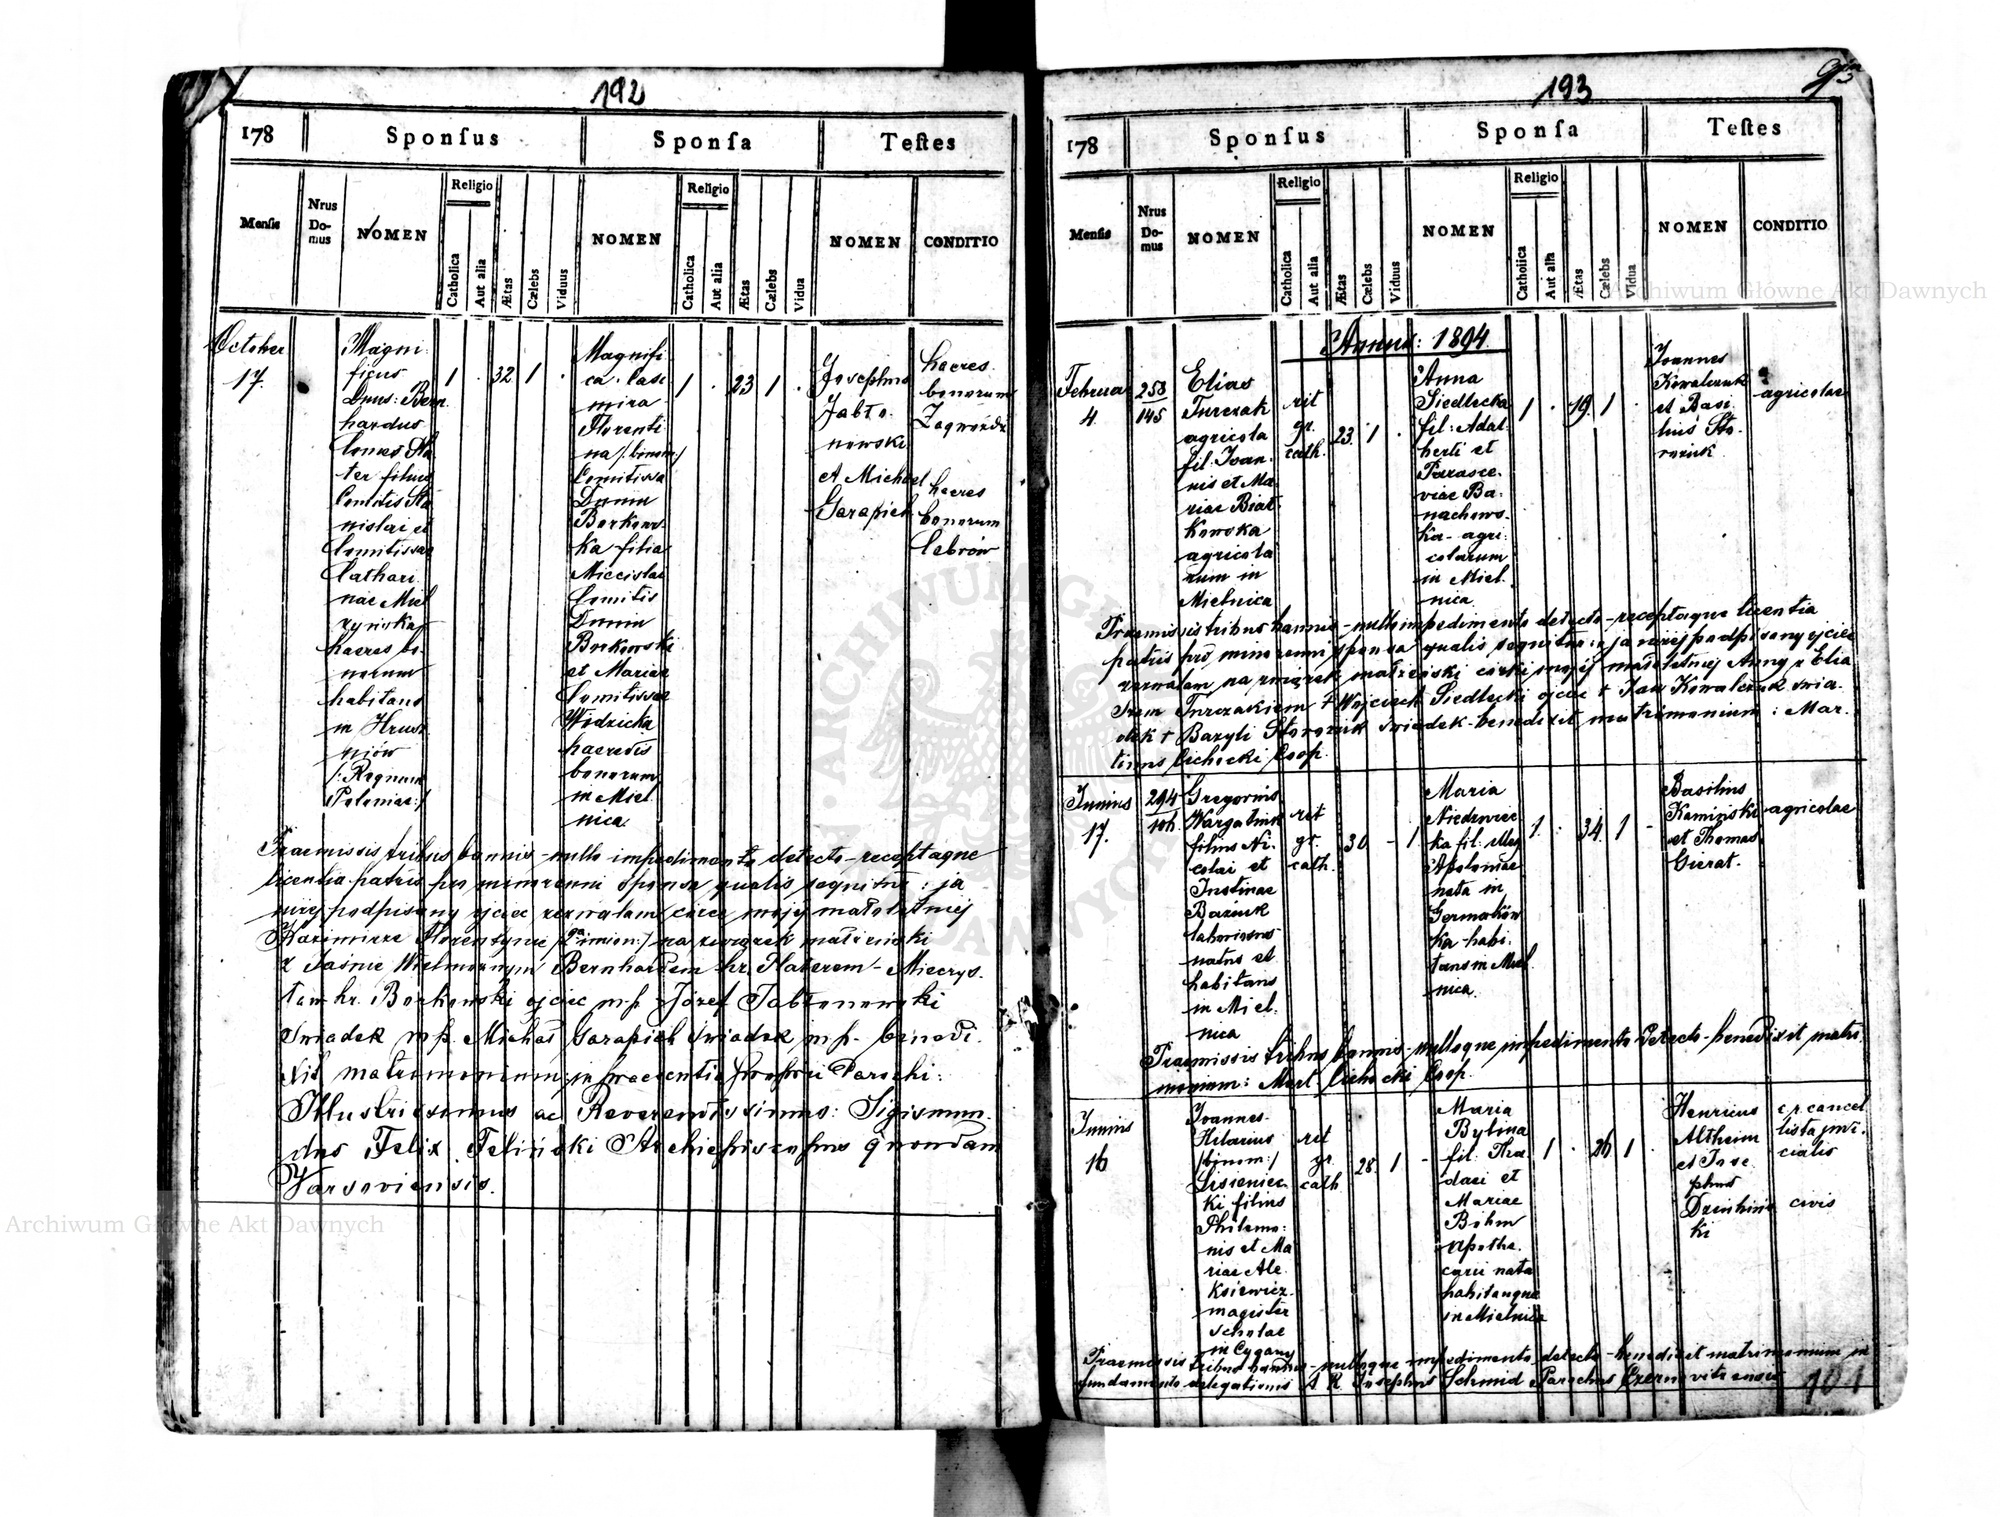 192
178
Sponſus
Sponſa
Teſtes
Menſis
Nrus Do-mus
NOMEN
Religio
Catholica
Aut alia
Ætas
Cælebs
Viduus
NOMEN
Religio
Catholica
Aut alia
Ætas
Cælebs
Vidua
NOMEN
CONDITIO
October
17.
Magni
ficus
Dnus: Bern
hardus
Comes Pla
ter filius
Comitis Sta
nislai et
Comitissae
Cathari
nae Miel
zyńska
haeres bo-
norum
habitans
in Hrusz
niów
/: Regnum
Poloniae:/
1 . 32 1 .
Magnifi
ca Casi
mira
Florenti
na /:binom:/
Comitissa
Dunin
Borkows-
ka filia
Miecislai
Comitis
Dunin
Borkowski
et Mariae
Comitissae
Wodzicka
haeredis
bonorum
in Miel
nica.
1 . 23 1 .
Josephus
Jabło-
nowski
et Michael
Garapich
haeres
bonorum
Zagwóźdź
haeres
bonorum
Cebrów
Praemissis tribus bannis - nullo impedimento detecto - receptaque
licentia patris pro minorenni sponsa qualis sequitur: ja
niżej podpisany ojciec zezwalam córce mojej małoletniej
Kazimirze Florentynie /:2ga imion:/ na związek małżeński
z Jaśnie Wielmożnym Bernhardem hr. Platerem - Mieczys-
ław hr. Borkowski ojciec mp. Józef Jabłonowski
świadek mp. Michał Garapich świadek mp. - benedi-
xit matrimonium in praesentia proprii Parochi:
Illustrissimus ac Reverendissimus: Sigismun-
dus Felix Feliński Archiepiscopus quondam
Varsoviensis.
193
178
Sponſus
Sponſa
Teſtes
Menſis
Nrus Do-mus
NOMEN
Religio
Catholica
Aut alia
Ætas
Cælebs
Viduus
NOMEN
Religio
Catholica
Aut alia
Ætas
Cælebs
Vidua
NOMEN
CONDITIO
Annus: 1894.
Februar
4.
253
145
Elias
Turczak
agricola
fil: Joan-
nis et Ma-
riae Biał-
kowska
agricola
rum in
Mielnica
rit
gr.
cath.
23. 1 .
Anna
Siedlecka
fil: Adal-
berti et
Parasce-
viae Ba-
nachows-
ka - agri-
colarum
in Miel-
nica
1 . 19. 1 .
Joannes
Kowalczuk
et Basi-
lius Sto-
rozuk
agricolae
Praemissis tribus bannis - nullo impedimento detecto - receptaque licentia
patris pro minorenni sponsa qualis sequitur: ja niżej podpisany ojciec
zezwalam na związek małżeński córki mojej małoletniej Anny z Elia-
szem Turczakiem + Wojciech Siedlecki ojciec + Jan Kowalczuk świa-
dek + Bazyli Storozuk świadek - benedixit matrimonium: Mar-
tinus Cichocki Coop.
Junius
17.
294
106.
Gregorius
Wargatiuk
filius Ni-
colai et
Justinae
Baziuk
laboriosus
natus et
habitans
in Miel-
nica
rit
gr.
cath.
30 - 1
Maria
Niedzwiec
ka fil: illeg
Apoloniae
nata in
Germaków
ka habi-
tans in Miel
nica
1. . 34. 1 -
Basilius
Kamiński
et Thomas
Gierat.
agricolae
Praemissis tribus bannis - nulloque impedimento detecto - benedixit matri-
monium: Mart. Cichocki Coop.
Junius
16
Joannes
Hilarius
/:binom:/
Lisseniec-
ki filius
Philemo-
nis et Ma
riae Ale-
ksiewicz
magister
scholae
in Cygany
rit
gr.
cath
28. 1 -
Maria
Bylina
fil: Tha-
daei et
Mariae
Böhm
apothe-
carii nata
habitanque
in Mielnica
1 . 26 1 .
Henricus
Altheim
et Jose-
phus
ki
c.r. cancel
lista judi-
cialis
civis
Praemissis tribus bannis - nulloque impedimento detecto - benedixit matrimonium in
fundamento delegationis A. R. Josephus Schmid Parochus Czernovitzensis
101
Archiwum Główne Akt Dawnych
Archiwum Główne Akt Dawnych
ARCHIWUM GŁÓWNE AKT DAWNYCH